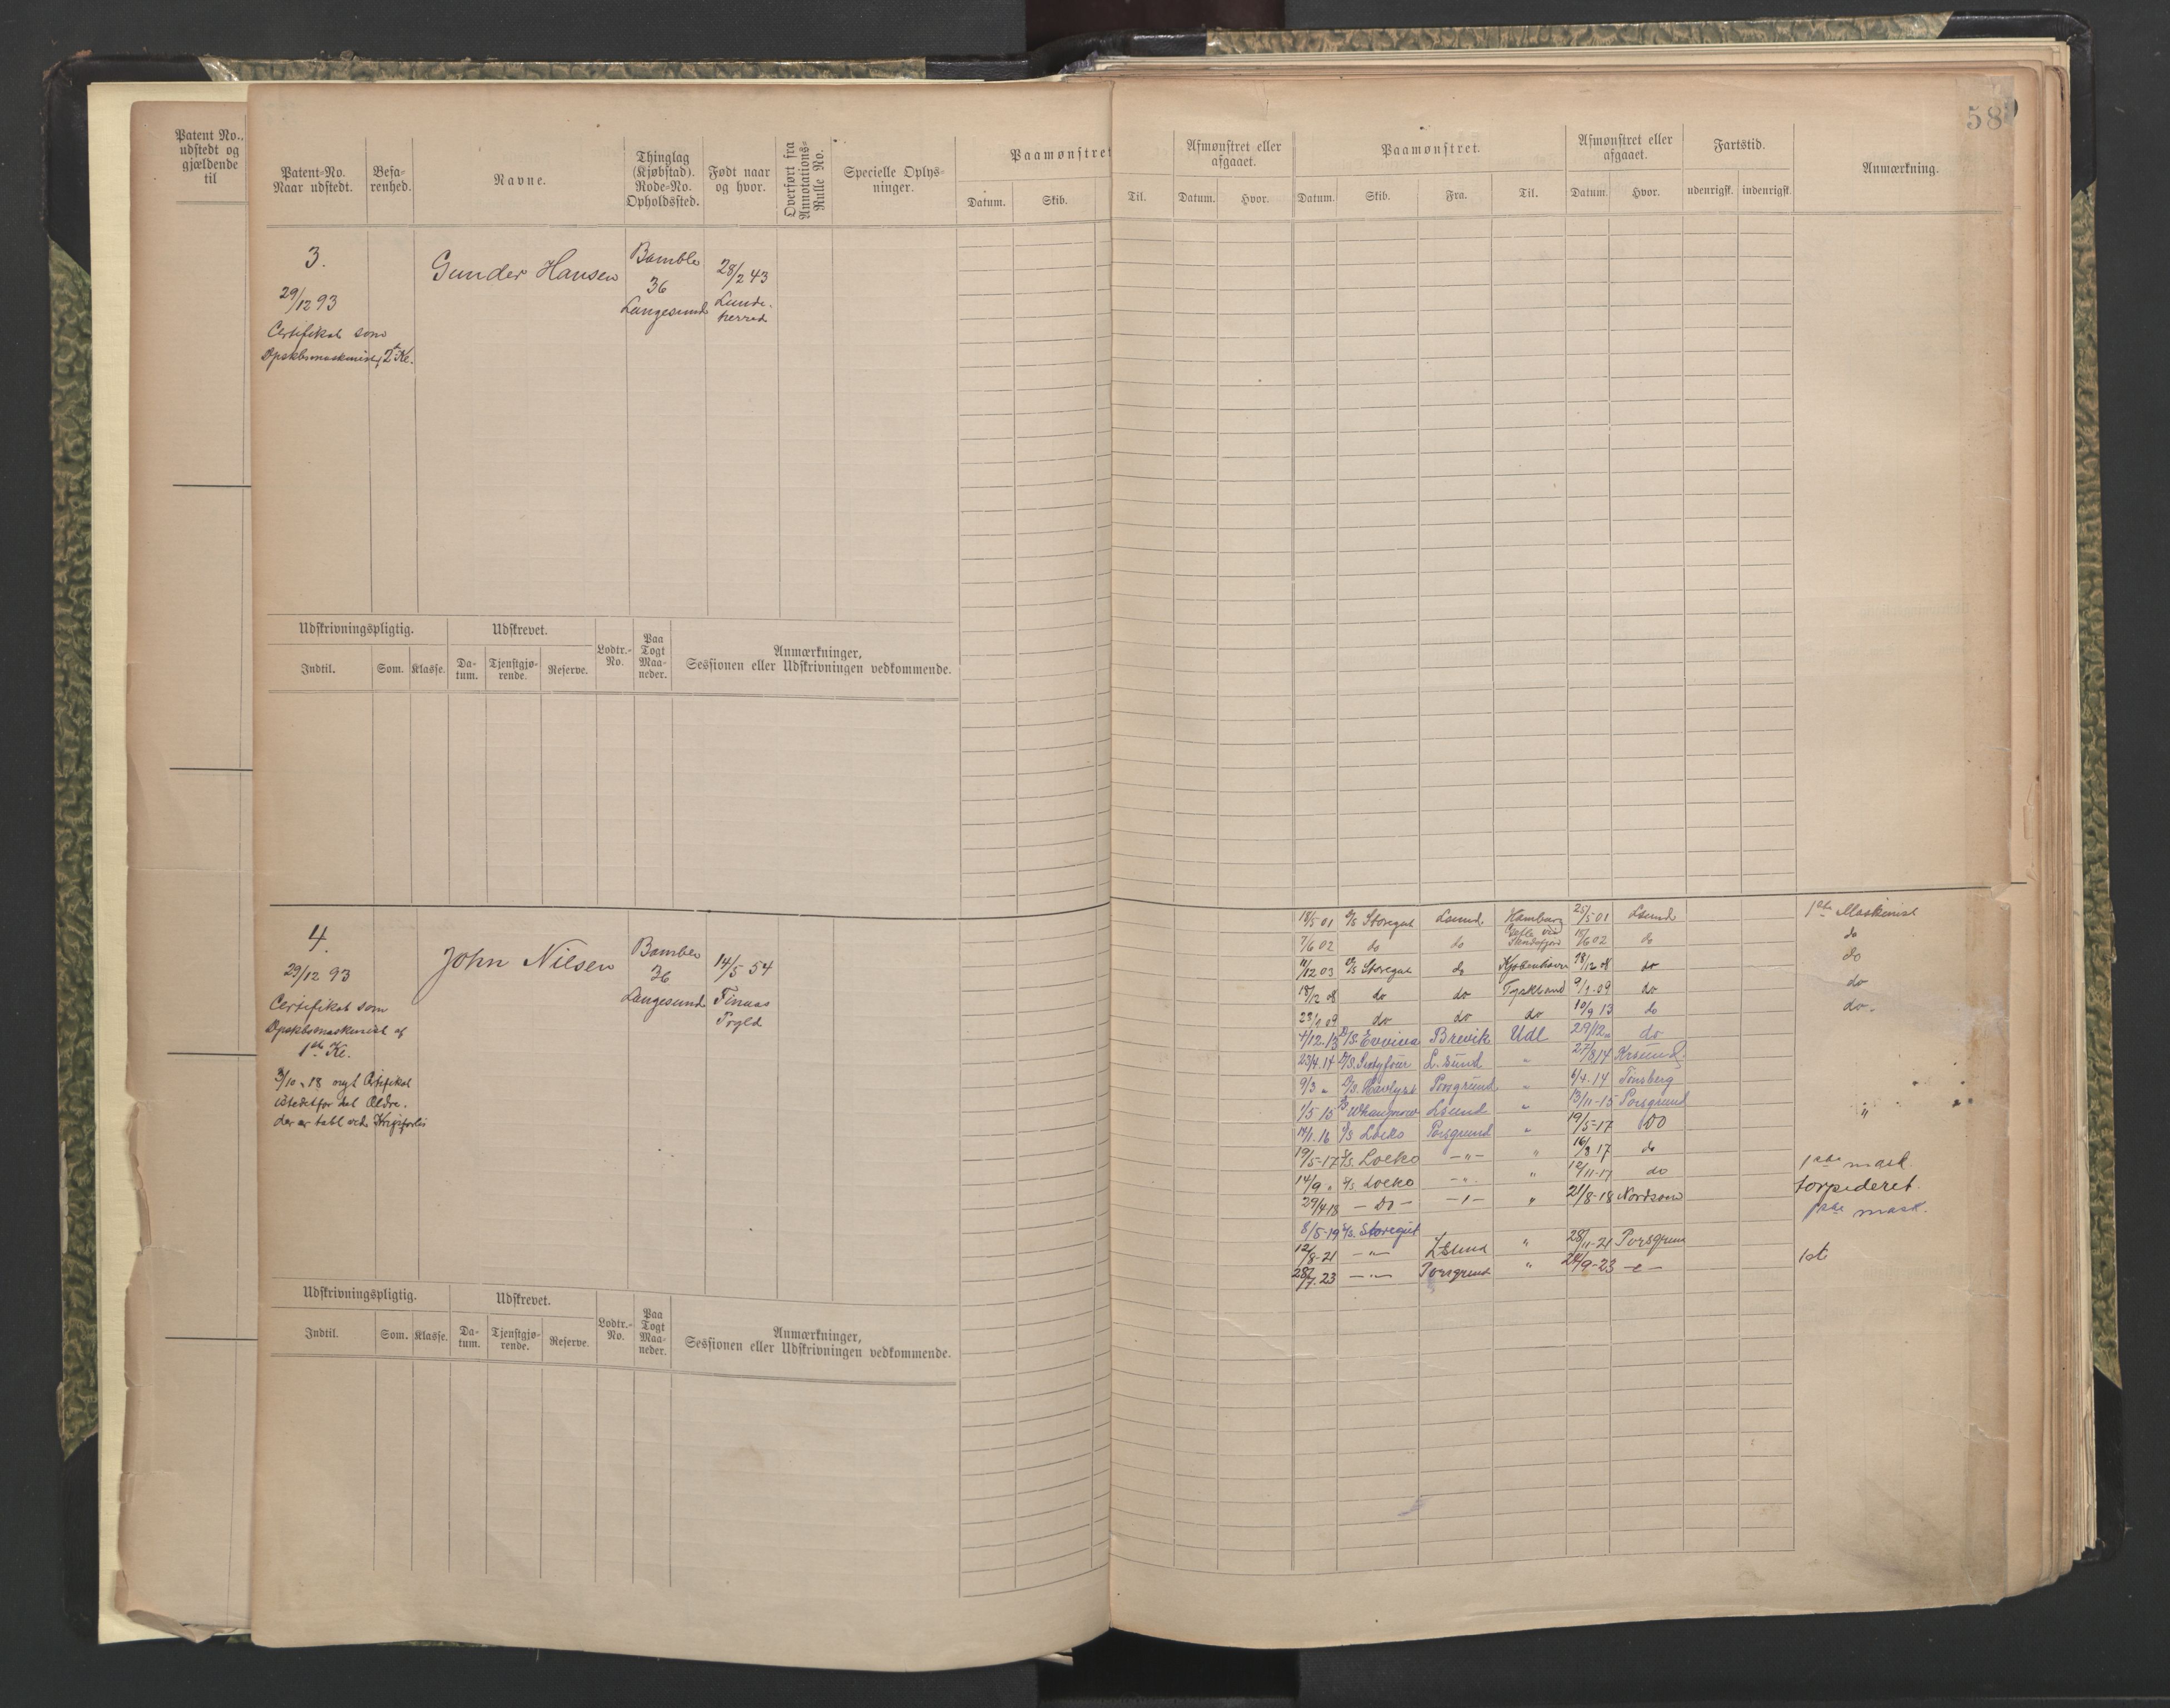 58
Patent No.,
udstedt og
gjældende
til
Patent-No.
Naar udstedt.
Befa-
renhed.
Navne.
Thinglag
(Kjøbstad).
Rode-No.
Opholdssted.
Født naar
og hvor.
Overført fra
Annotations-
Rulle No.
Specielle Oplys-
ninger.
Paamønstret
Datum.
Skib.
Til.
Afmønstret eller
afgaaet.
Datum.
Hvor.
Paamønstret.
Datum.
Skib.
Fra.
Til.
Afmønstret eller
afgaaet.
Datum.
Hvor.
Fartstid.
udenrigsk.
indenrigsk.
Anmærkning.
3.
29/12 93
Certifikat som
Gunder Hansen
Bamble
36
Langesund
28/2 43
Lunde-
herred
Udskrivningspligtig.
Indtil.
Som.
Klasse.
Udskrevet.
Da-
tum.
Tjenstgjø-
rende.
Reserve.
Lodtr.-
No.
Paa
Togt
Maa-
neder.
Anmærkninger,
Sessionen eller Udskrivningen vedkommende.
4.
29/12 93
Certifikat som
1ste Kl.
istedetfor det Ældre.
John Nilsen
Bamble
36
Langesund
14/5 54
18/5 01 D/S Storegut Lsund Hamburg 25/5 01 Lsund 1ste Maskinist
7/6 02 do do 02 do do
11/12 03 D/S Storegut do Kjøbenhavn 18/12 08 do do
18/12 08 do do Tyskland 9/1 09 do do
23/1 09 do do do 10/9 13 do do.
4/12-13 D/S Evviva Brevik Udl 29/12 " do
23/4.14 L.sund " 27/8 14 Krsund.
9/3 " Porsgrund " 6/4.14 Tønsberg
1/5 15 Lsund " 13/11-15 Porsgrund
16 D/S Loeko Porsgrund " 19/5-17 DO "
19/5-17 D/S. Loeko -"- " 16/8 17 do
14/9 " D/S Loeko -". " 12/11-17 do 1ste mask.
29/4 18 - Do - -"- " 21/8-18 torpederet.
8/5-19 D/S. Storegut 1ste mask.
12/8-21 -"- LSund " 28/11-21 Porsgrund
28/7.23 -"- Porsgrund " 24/9-23 -"- 1ste
Udskrivningspligtig.
Indtil.
Som.
Klasse.
Udskrevet.
Da-
tum.
Tjenstgjø-
rende.
Reserve.
Lodtr.-
No.
Paa
Togt
Maa-
neder.
Anmærkninger,
Sessionen eller Udskrivningen vedkommende.